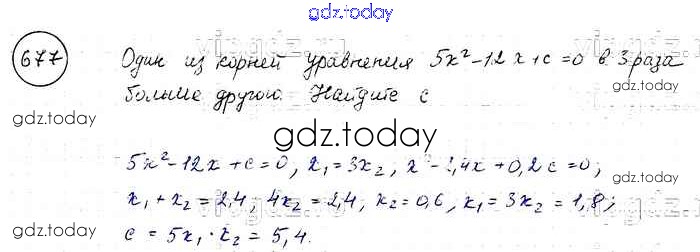 gdz.today
677 Один из корней уравнения 5x²-12x+c=0 в 3 раза
больше другого. Найдите c
gdz.today
gdz.today
5x²-12x+c=0, x₁=3x₂, x²-2,4x+0,2c=0;
x₁+x₂=2,4, 4x₂=2,4, x₂=0,6, x₁=3x₂=1,8;
gdz.today
gdz.today
c=5x₁·x₂=5,4.